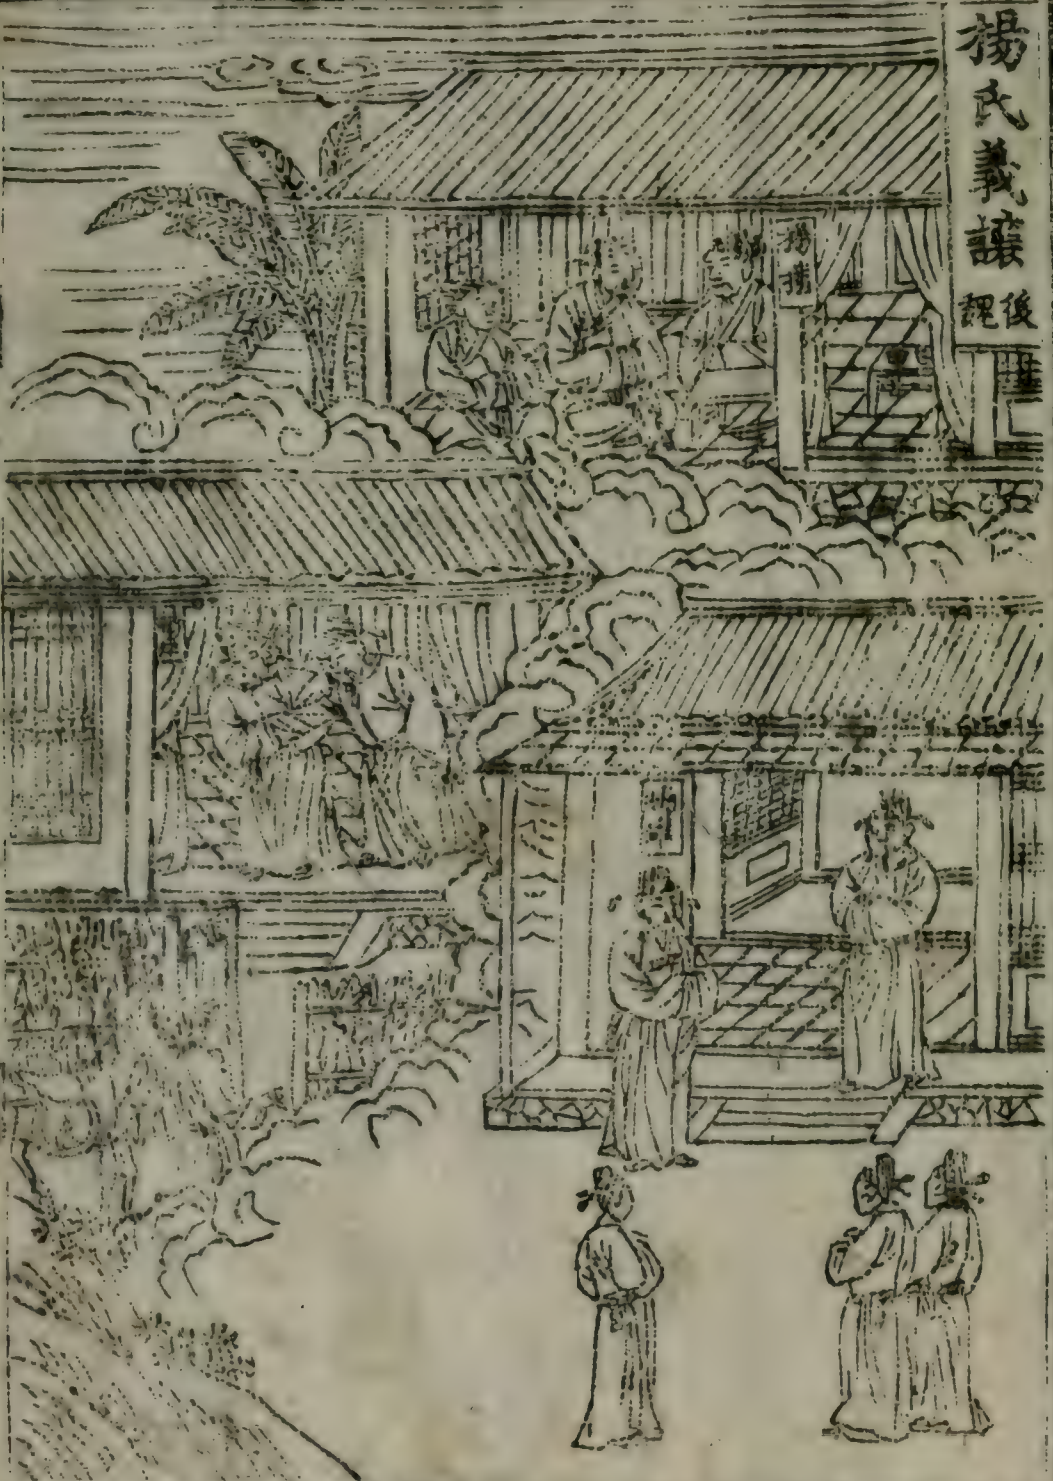 楊氏義讓
後魏
楊播